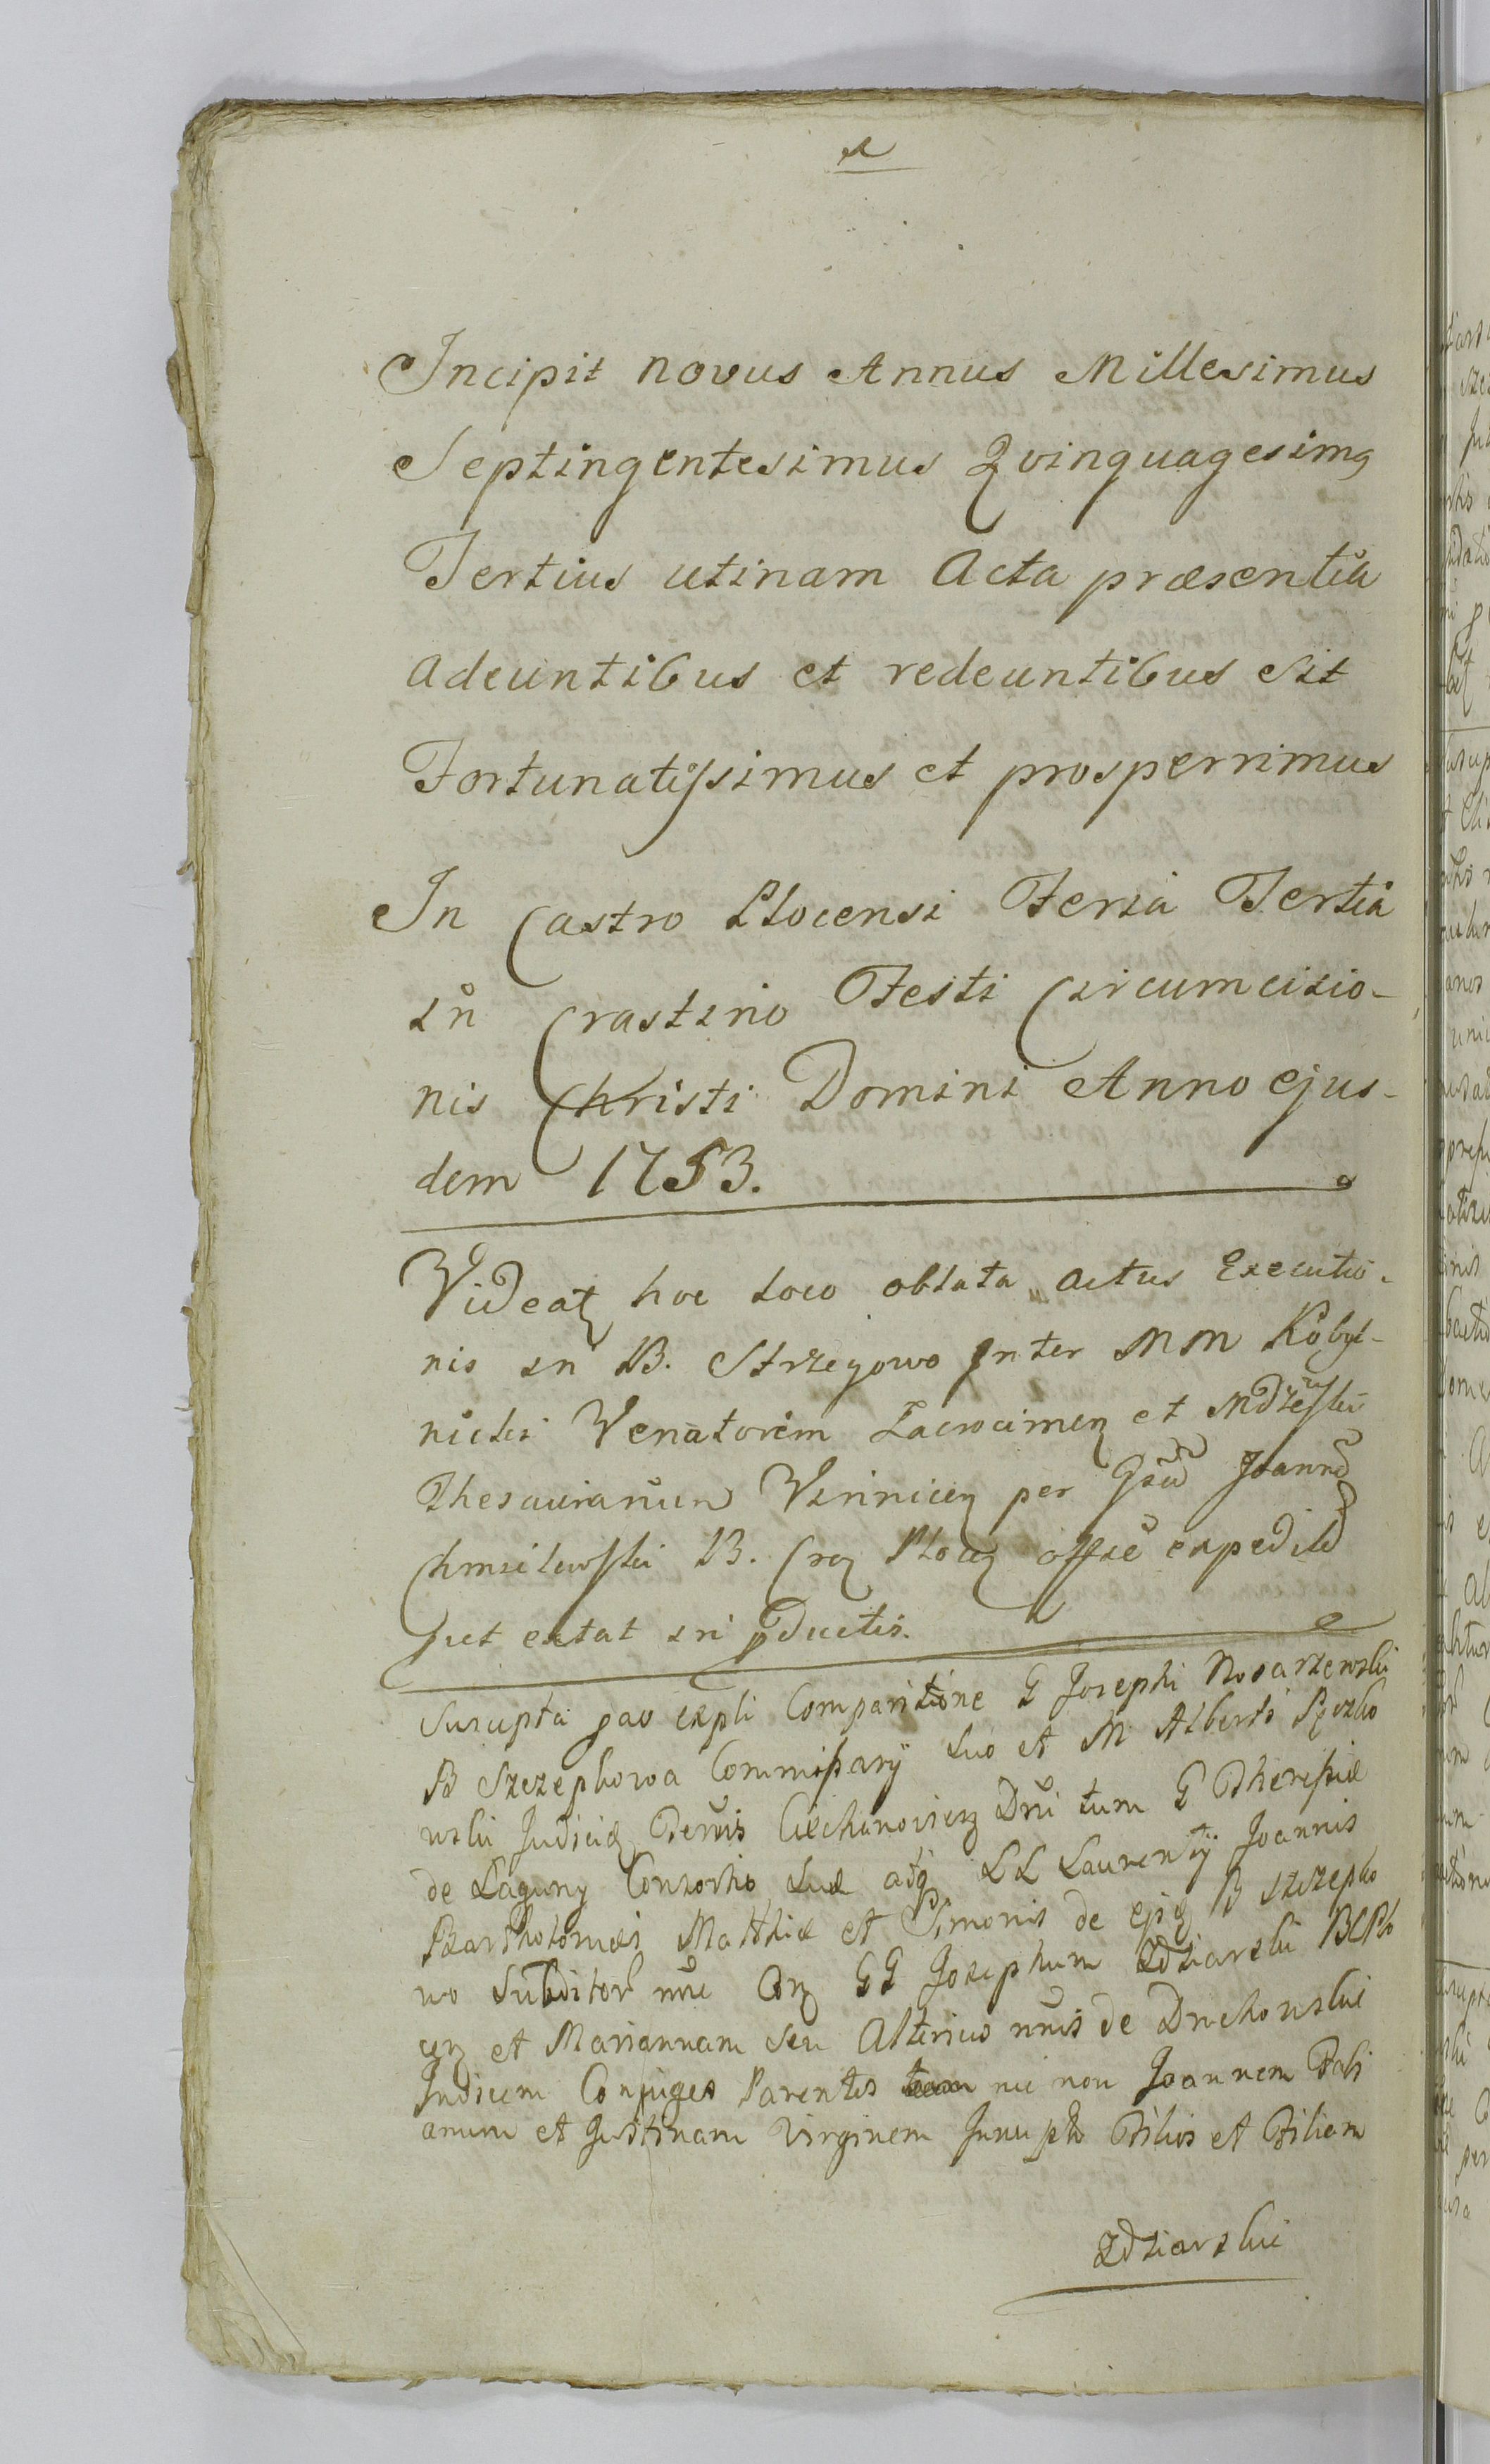 Incipit novus Annus Millesimus
Septingentesimus Qvinquagesimꝯ
Tertius utinam Acta præsentia
Adeuntibus et redeuntibus Sit
Fortunatissimus et prosperrimus
In Castro Plocensi Feria Tertia
in Crastino Festi Circumcisio-
nis Christi Domini Anno ejus-
dem 1753.
Videat hoc loco oblata Actus Executio-
nis in B. Strzegowo Inter MM Kobyl-
nicki Venatorem Zacrocimen et
Thesaurarium Vinnicen per Joannē
Chmielewski B. Plocen offse expedild
put extat in pductis.
Suscepta Comparitione G Josephi Nosarzewski
B Szczepkowa Commissarÿ Suo et M Alberti
wski Judicis Ciechanovien Dni tum G Theresiæ
de Laguny Consorkio Suæ adq LL Laurentÿ Joannis
Bartholomæi Matthiæ et Simonis de B Szczepko
wo Subditor nne GG Josephum Zdziarski
cen et Mariannam Seu Alterius nnis de Druchowskie
Judicem Conjuges Parentes nec non Joannem Fabi
anum et Justinam Virginem Filios et Filiam
Zdziarskie